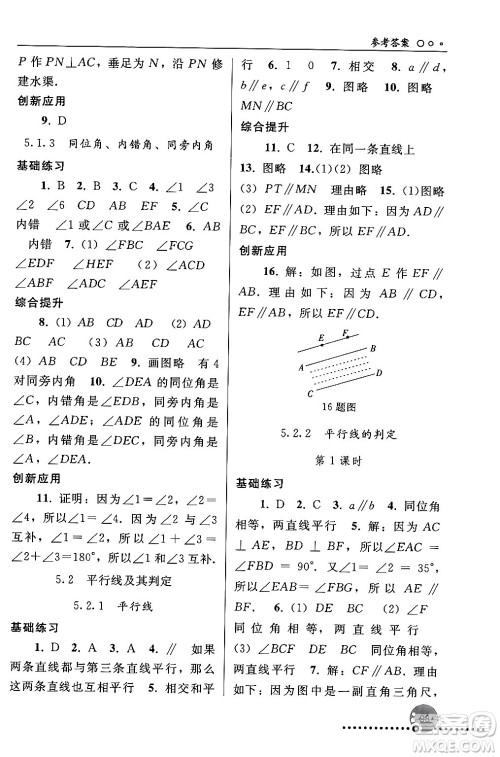 参考答案
P 作 PN⊥AC，垂足为 N，沿 PN 修
建水渠．
创新应用
9. D
5.1.3 同位角、内错角、同旁内角
基础练习
1. B 2. B 3. C 4. ∠1 ∠3
∠2 ∠6 5. ∠1 ∠3 ∠2 6. ∠C
内错 ∠1 或∠BAC ∠2 或∠EAC
内错 7. (1) ∠FBC ∠FCG
∠EDF ∠HEF (2) ∠ABC ∠FCG
∠ADF ∠HED
综合提升
8. (1) AB CD AD (2) AD
BC AC (3) AB CD BC
(4) AB CD BE 9. 画图略 有 4
对同旁内角 10. ∠DEA 的同位角是
∠C，∠ADE 的同位角是∠B；
∠DEA 的内错角是∠BDE，∠ADE
的内错角是∠CED；∠DEA 的同旁内
角是∠A，∠ADE；∠ADE 的同旁内角
是∠A，∠DEA．
创新应用
11. 证明：因为∠1＝∠2，∠2＝
∠4，所以∠1＝∠4．因为∠2＋∠3＝
180°，又因为∠1＝∠2，所以∠1＋
∠3＝180°，所以∠1 与∠3 互补．
5.2 平行线及其判定
5.2.1 平行线
基础练习
1. D 2. A 3. A 4. ∥ 如果
两条直线都与第三条直线平行，那么
这两条直线也互相平行 5. 相交 平
行 6. 1 0 7. 相交 8. a∥d，
a∥e，d∥e，b∥c 9. 图略 10. 图略
MN∥BC
综合提升
11. C 12. 在同一条直线上
13. 图略 14. (1)(2) 图略
(3) PT∥MN 理由略 15. (1)(2) 图
略 (3) EF∥AB．理由如下：因为
EF∥CD，CD∥AB，所以 EF∥AB．
创新应用
16. 解：如图，过点 E 作 EF∥
AB．理由如下：因为 AB∥CD，
EF∥AB，所以 EF∥CD．
E
F
B
A
D
C
16 题图
5.2.2 平行线的判定
第 1 课时
基础练习
1. D 2. C 3. a∥b 4. 同位角
相等，两直线平行 5. 解：因为 AC
⊥AE，BD⊥BF，所以∠EAC＝
∠FBD＝90°．因为∠1＝∠2＝35°，
所以∠EAB＝∠FBG，所以 AE∥
BF． 6. (1) AB CD (2) ∠C
同位角相等，两直线平行
(3) ∠EFB 同位角相等，两直线平
行 7. 解：CF∥AB．理由如下：
因为图中是一副直角三角尺，